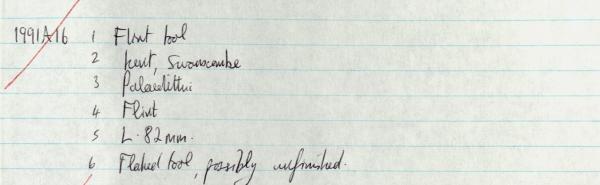 1991A16 1 Flint tool
2 Kent, Swanscombe
3 Palaeolithic
4 Flint
5 L. 82 mm.
6 Flaked tool, possibly unfinished.